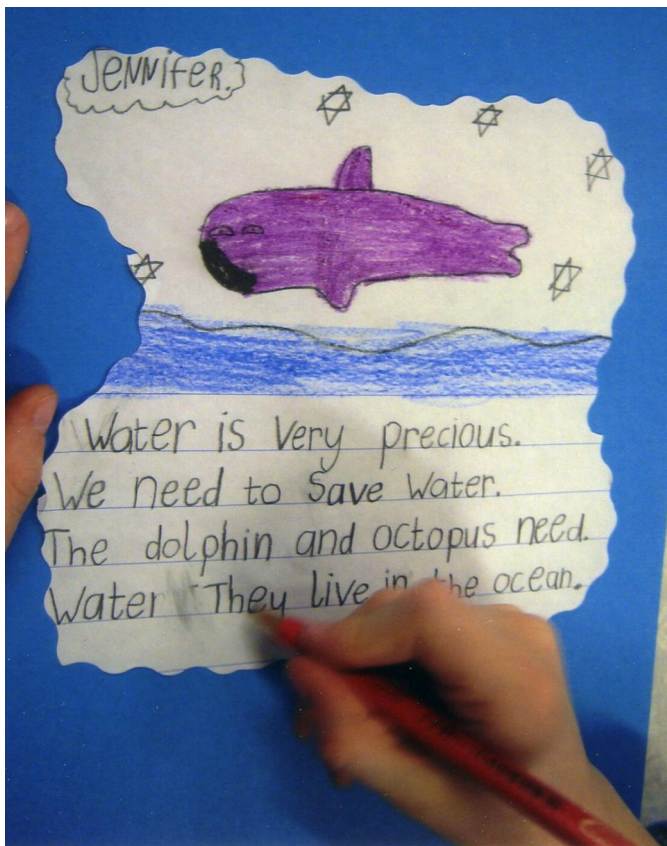 JENNifeR.
Water is Very precious.
We need to Save Water.
The dolphin and octopus need.
Water They live in the ocean.